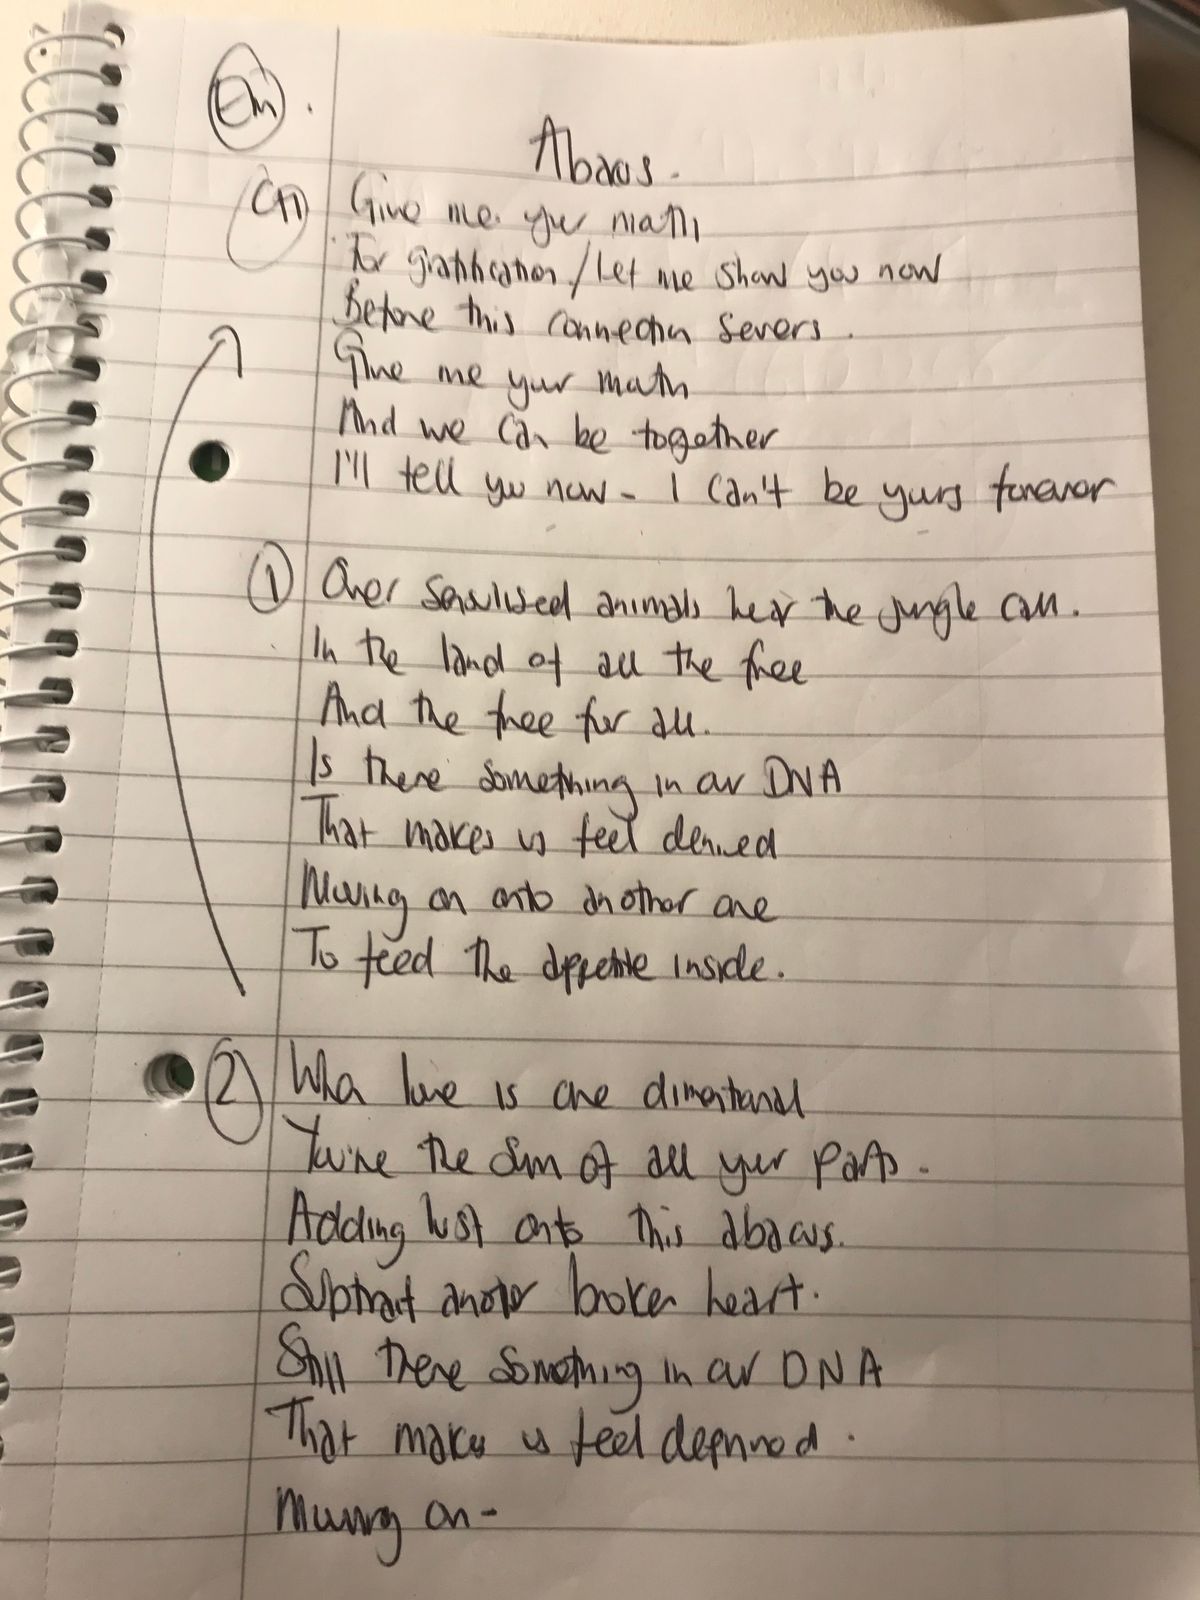 Em.
Abacus.
CH
Give me your math
For gratification / Let me show you now
Before this connection severs.
Give me your math
And we can be together
I'll tell you now - I can't be yours forever
1
Over sexualised animals hear the jungle call.
In the land of all the free
And the free for all.
Is there something in our DNA
That makes us feel denied
Moving on onto another one
To feed the appetite inside.
2
When love is one dimentional
You're the sum of all your parts.
Adding lust onto this abacus.
Subtract another broken heart.
Still there something in our DNA
That makes us feel deprived.
Moving on -